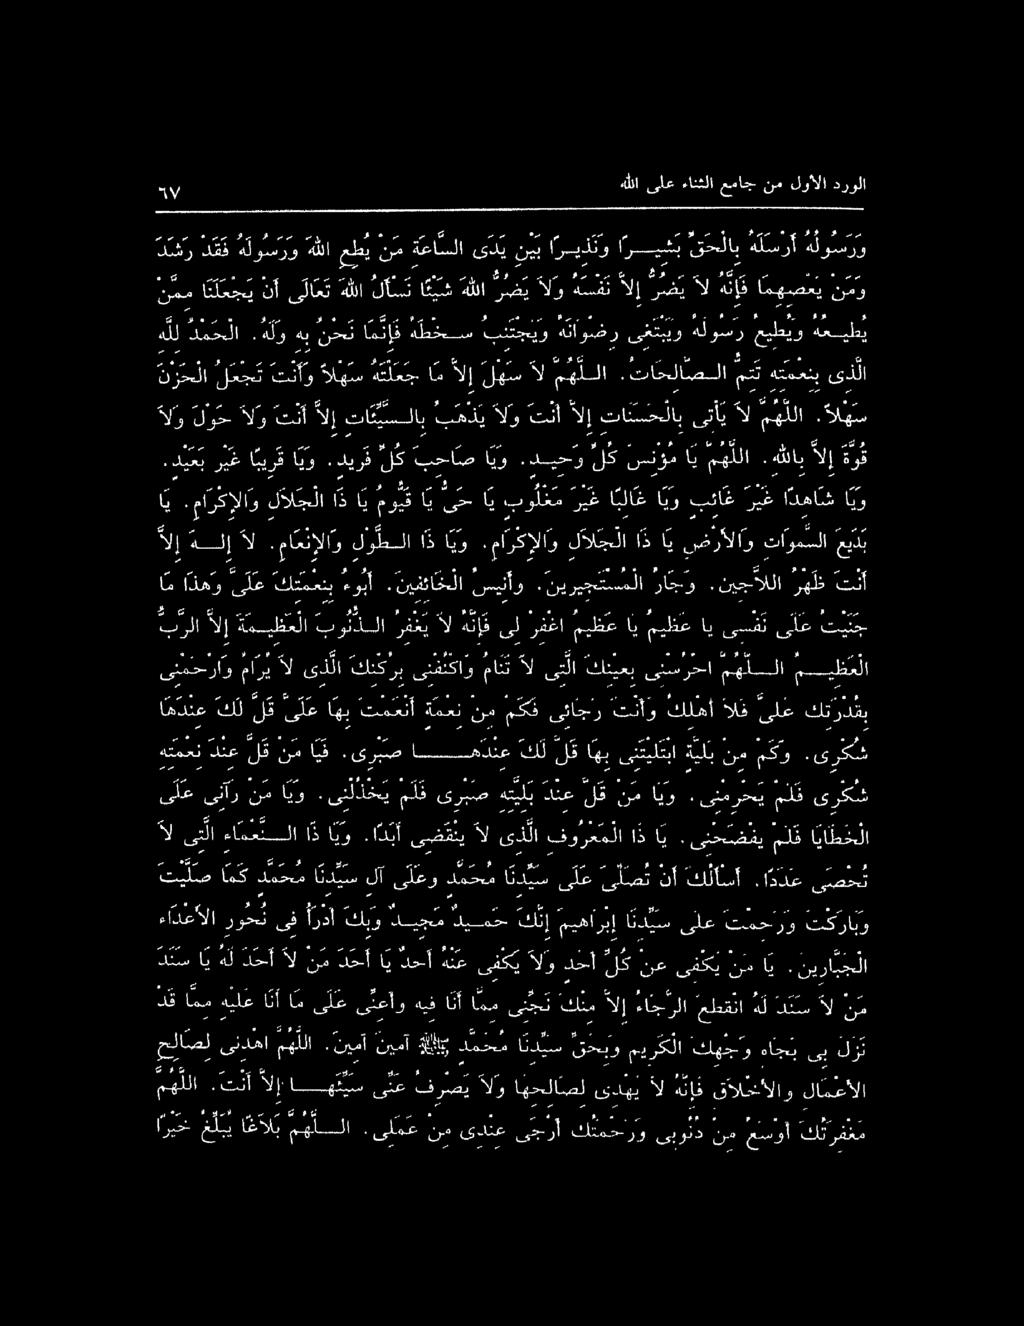 الورد الأول من جامع الثناء على الله ٦٧
وَرَسُولُهُ أَرْسَلَهُ بِالْحَقِّ بَشِيــرًا وَنَذِيــرًا بَيْنَ يَدَىِ السَّاعَةِ مَنْ يُطِعِ اللهَ وَرَسُولَهُ فَقَدْ رَشَدَ
وَمَنْ يَعْصِهِمَا فَإِنَّهُ لاَ يَضُرُّ إِلاَّ نَفْسَهُ وَلاَ يَضُرُّ اللهَ شَيْئًا نَسْأَلُ اللهَ تَعَالَى أَنْ يَجْعَلَنَا مِمَّنْ
يُطِيــعُهُ وَيُطِيعُ رَسُولَهُ وَيَبْتَغِى رِضْوَانَهُ وَيَجْتَنِبُ ســخَطَهُ فَإِنَّمَا نَحْنُ بِهِ وَلَهُ. الْحَمْدُ لِلَّهِ
الَّذِى بِنِعْمَتِهِ تَتِمُّ الــصَّالِحَاتُ. الــلَّهُمَّ لاَ سَهْلَ إِلاَّ مَا جَعَلْتَهُ سَهْلاً وَأَنْتَ تَجْعَلُ الْحَزْنَ
سَهْلاً. اللَّهُمَّ لاَ يَأْتِى بِالْحَسَنَاتِ إِلاَّ أَنْتَ وَلاَ يَذْهَبُ بِالــسَّيِّئَاتِ إِلاَّ أَنْتَ وَلاَ حَوْلَ وَلاَ
قُوَّةَ إِلاَّ بِاللهِ. اللَّهُمَّ يَا مُؤْنِسَ كُلِّ وَحِيــدٍ. وَيَا صَاحِبَ كُلِّ فَرِيدٍ. وَيَا قَرِيبًا غَيْرَ بَعِيدٍ.
وَيَا شَاهِدًا غَيْرَ غَائِبٍ وَيَا غَالِبًا غَيْرَ مَغْلُوبٍ يَا حَىُّ يَا قَيُّومُ يَا ذَا الْجَلاَلِ وَالإِكْرَامِ. يَا
بَدِيعَ السَّمَوَاتِ وَالأَرْضِ يَا ذَا الْجَلاَلِ وَالإِكْرَامِ. وَيَا ذَا الــطَّوْلِ وَالإِنْعَامِ. لاَ إِلــهَ إِلاَّ
أَنْتَ ظَهْرُ اللاَّجِينَ. وَجَارُ الْمُسْتَجِيرِينَ. وَأَنِيسُ الْخَائِفِينَ. أَبُوءُ بِنِعْمَتِكَ عَلَىَّ وَهَذَا مَا
جَنَيْتُ عَلَى نَفْسِى يَا عَظِيمُ يَا عَظِيمُ اغْفِرْ لِى فَإِنَّهُ لاَ يَغْفِرُ الــذُّنُوبَ الْعَظِيــمَةَ إِلاَّ الرَّبُّ
الْعَظِيــمُ الــلَّهُمَّ احْرُسْنِى بِعَيْنِكَ الَّتِى لاَ تَنَامُ وَاكْنُفْنِى بِرُكْنِكَ الَّذِى لاَ يُرَامُ وَارْحَمْنِى
بِقُدْرَتِكَ عَلَىَّ فَلاَ أَهْلِكُ وَأَنْتَ رَجَائِى فَكَمْ مِنْ نِعْمَةٍ أَنْعَمْتَ بِهَا عَلَىَّ قَلَّ لَكَ عِنْدَهَا
شُكْرِى. وَكَمْ مِنْ بَلِيَّةٍ ابْتَلَيْتَنِى بِهَا قَلَّ لَكَ عِنْدَهــا صَبْرِى. فَيَا مَنْ قَلَّ عِنْدَ نِعْمَتِهِ
شُكْرِى فَلَمْ يَحْرِمْنِى. وَيَا مَنْ قَلَّ عِنْدَ بَلِيَّتِهِ صَبْرِى فَلَمْ يَخْذُلْنِى. وَيَا مَنْ رَآنِى عَلَى
الْخَطَايَا فَلَمْ يَفْضَحْنِى. يَا ذَا الْمَعْرُوفِ الَّذِى لاَ يَنْقَضِى أَبَدًا. وَيَا ذَا الــنَّعْمَاءِ الَّتِى لاَ
تُحْصَى عَدَدًا. أَسْأَلُكَ أَنْ تُصَلِّىَ عَلَى سَيِّدِنَا مُحَمَّدٍ وَعَلَى آلِ سَيِّدِنَا مُحَمَّدٍ كَمَا صَلَّيْتَ
وَبَارَكْتَ وَرَحِمْتَ عَلَى سَيِّدِنَا إِبْرَاهِيمَ إِنَّكَ حَمِــيدٌ مَجِيــدٌ وَبِكَ أَدْرَأُ فِى نُحُورِ الأَعْدَاءِ
الْجَبَّارِينَ. يَا مَنْ يَكْفِى عَنْ كُلِّ أَحَدٍ وَلاَ يَكْفِى عَنْهُ أَحَدٌ يَا أَحَدَ مَنْ لاَ أَحَدَ لَهُ يَا سَنَدَ
مَنْ لاَ سَنَدَ لَهُ انْقَطَعَ الرَّجَاءُ إِلاَّ مِنْكَ نَجِّنِى مِمَّا أَنَا فِيهِ وَأَعِنِّى عَلَى مَا أَنَا عَلَيْهِ مِمَّا قَدْ
نَزَلَ بِى بِجَاهِ وَجْهِكَ الْكَرِيمِ وَبِحَقِّ سَيِّدِنَا مُحَمَّدٍ ﷺ آمِينَ آمِينَ. اللَّهُمَّ اهْدِنِى لِصَالِحِ
الأَعْمَالِ وَالأَخْلاَقِ فَإِنَّهُ لاَ يَهْدِى لِصَالِحِهَا وَلاَ يَصْرِفُ عَنِّى سَيِّئَهــا إِلاَّ أَنْتَ. اللَّهُمَّ
مَغْفِرَتُكَ أَوْسَعُ مِنْ ذُنُوبِى وَرَحْمَتُكَ أَرْجَى عِنْدِى مِنْ عَمَلِى. الــلَّهُمَّ بَلاَغًا يُبَلِّغُ خَيْرًا